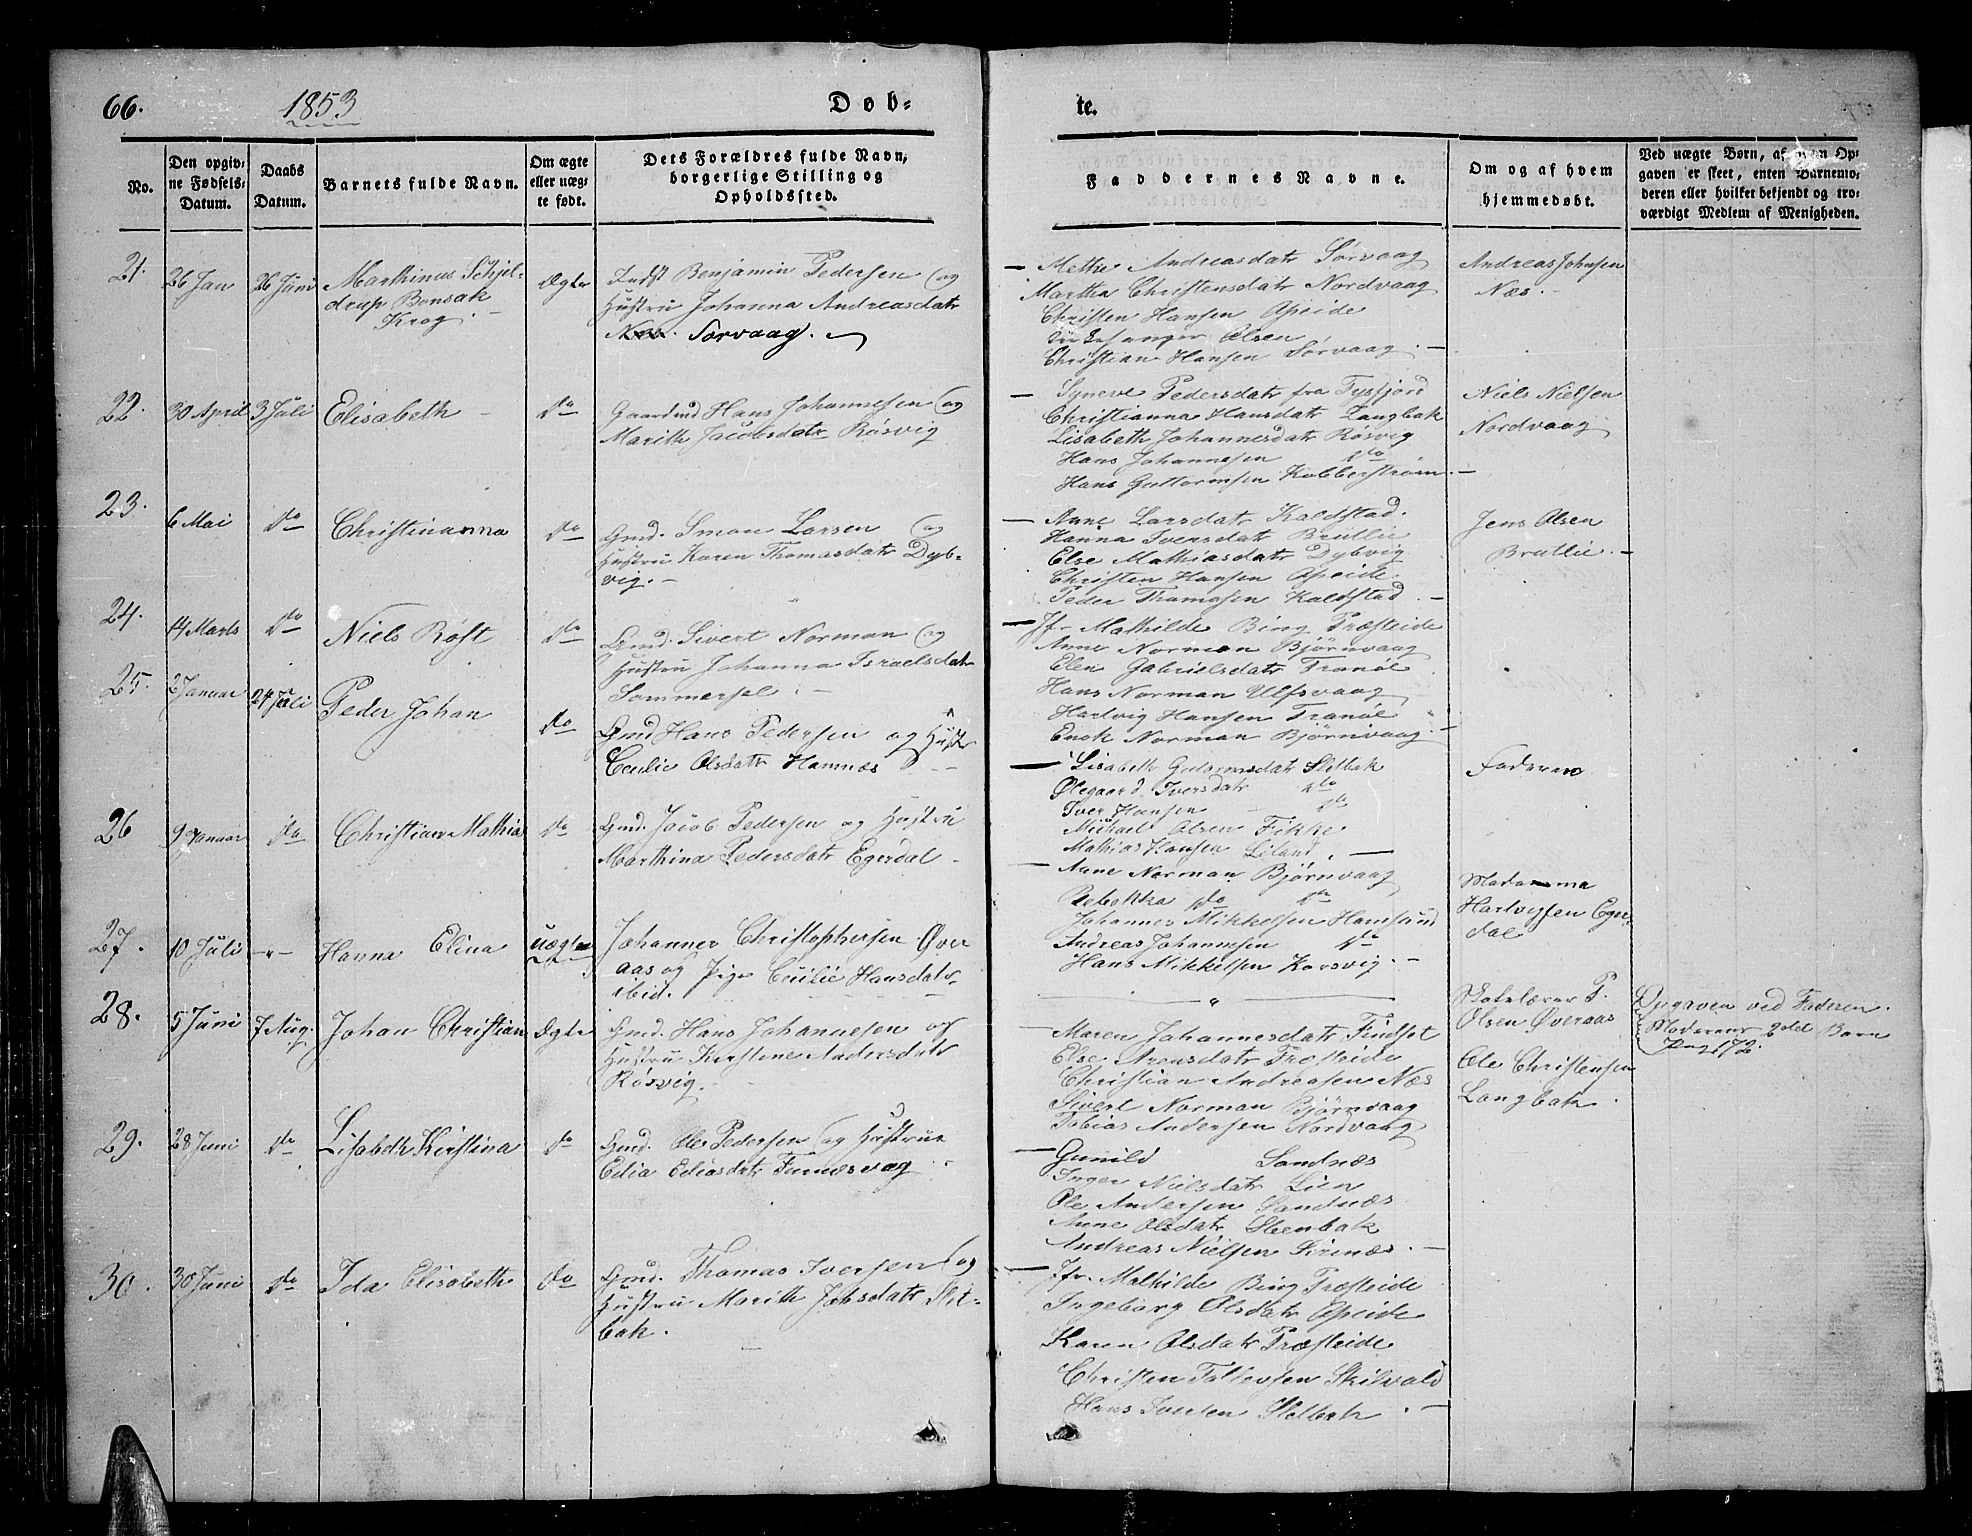 66.
1853
Døb-
te.
No.
Den opgiv-
ne Fødsels-
Datum.
Daabs
Datum.
Barnets fulde Navn.
Om ægte
eller uæg-
te født.
Dets Forældres fulde Navn,
borgerlige Stilling og
Opholdssted.
Faddernes Navne.
Om og af hvem
hjemmedøbt.
Ved uægte Børn, af hvem Op-
gaven er skeet, enten Barnemo-
deren eller hvilket bekjendt og tro-
værdigt Medlem af Menigheden.
21.
26 Jan
26 Juni
Marthinus Schjel-
drup Bonsak
Krog.
Ægte
Indst Benjamin Pedersen og
Hustru Johanna Andreasdatr
Sørvaag.
Methe Andreasdatr Sørvaag
Martha Christensdatr Nordvaag
Christen Hansen Apeide
Olsen
Christian Hansen Sørvaag.
Andreas Johnsen
Næs.
22.
30 April
3 Juli
Elisabeth
do
Gaardmd Hans Johannesen og
Marith Jacobsdatr Røsvig
Syneve Pedersdatr fra Tysfjord
Christianna Hansdatr Langbak
Lisabeth Johannesdatr Røsvig
Hans Johannesen do
Hans Guttormsen Kobberstrøm.
Niels Nielsen
Nordvaag
23.
6 Mai
do
Christinanna
do
Gmd. Simon Larsen og
Hustru Karen Thomasdatr Dyb-
vig.
Anne Larsdatr Kaldstad.
Hanna Iversdatr Brutlie
Else Mathiasdatr Dybvig
Christen Hansen Apeide
Peder Thomasen Kaldstad.
Jens Olsen
Brutlie.
24.
14 Marts
do
Niels Røst
do
Gmd. Sivert Norman og
Hustru Johanna Israelsdatr
Sommersel.
Jfr Mathilde Bing Præsteide
Anne Norman Bjørnvaag
Elen Gabrielsdatr Tranøe
Hans Norman Ulfsvaag
Hartvig Hansen Tranøe
Enok Norman Bjørnvaag.
25.
2 Januar
24 Juli
Peder Johan
do
Gmd Hans Pedersen og Hustr
Cecilie Olsdatr Hamnæs
Lisabeth Sletbak
Ølegaard Iversdatr do
Iver Hansen do
Michael Olsen Fikke
Mathias Hansen Liland.
Faderen
26
9 Januar
do
Christian Mathia
do
Gmd. Jacob Pedersen og Hustru
Marthina Pedersdatr Egerdal
Anne Norman Bjørnvaag
Rebekka do do
Johannes Mikkelsen Hamsund
Andreas Johannesen do
Hans Mikkelsen Korsvig.
Madamma
Hartvigsen Eger-
dal
27.
10 Juli
Hanna Elina
uægte
Johannes Christophersen Øver
aas og Pige Cecilie Hansdatr
ibid.
Skolelærer P.
Olsen Øveraas
Opgaven ved Faderen.
Moderens 2det Barn
28.
5 Juni
7 Aug.
Johan Christian
Ægte
Gmd. Hans Johannesen og
Hustru Kirstene Andersdatr
Røsvig.
Maren Johannesdatr Findset
Else Arensdatr Præsteide
Christian Andreasen Næs
Sivert Norman Bjørnvaag
Tobias Andersen Nordvaag
Ole Christensen
Langbak.
29.
28 Juni
do
Lisabeth Kirstina
do
Gmd. Ole Pedersen og Hustrue
Edia Ediasdatr Furnesvag
Gunild Sandnæs
Inger Nielsdatr Lien
Ole Andersen Sandnæs
Anne Olsdatr Stenbak
Andreas Nielsen
30.
30 Juni
do
Ida Elisabeth
do
Gmd. Thomas Iversen og
Hustru Marith Johsdatr Slet-
bak.
Jfr. Mathilde Bing Præsteide
Ingeborg Olsdatr Apeide
Karen Olsdatr Præsteide
Christen Tollevsen Skilvald
Hans Iversen Sletbak.